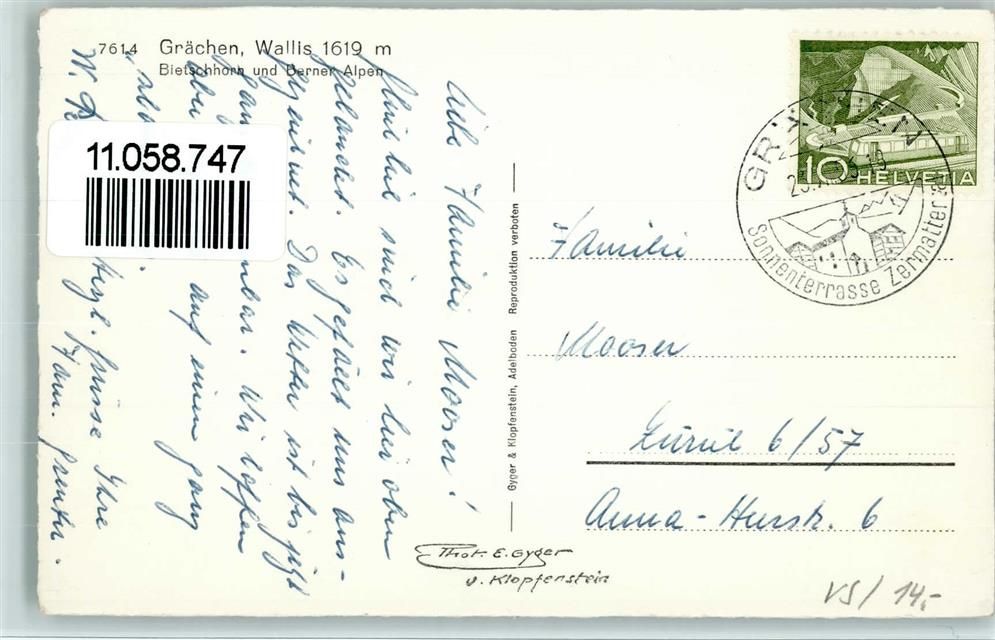 7614 Grächen, Wallis 1619 m
Bietschhorn und Berner Alpen
11.058.747
Liebe Familie Mooser!
sind wir hier oben
gelandet. Es gefällt uns aus-
gezeichnet. Das Wetter ist bis jetzt
Wir hoffen
auf einen ganz
Herzl. Grüsse Ihre
Fam.
Gyger & Klopfenstein, Adelboden Reproduktion verboten
HELVETIA
10
GRÄCHEN
Sonnenterrasse Zermattertal
Familie
Mooser
Zürich 6/57
Anna-Heerstr. 6
Phot. E. Gyger
u. Klopfenstein
VS/ 14.-